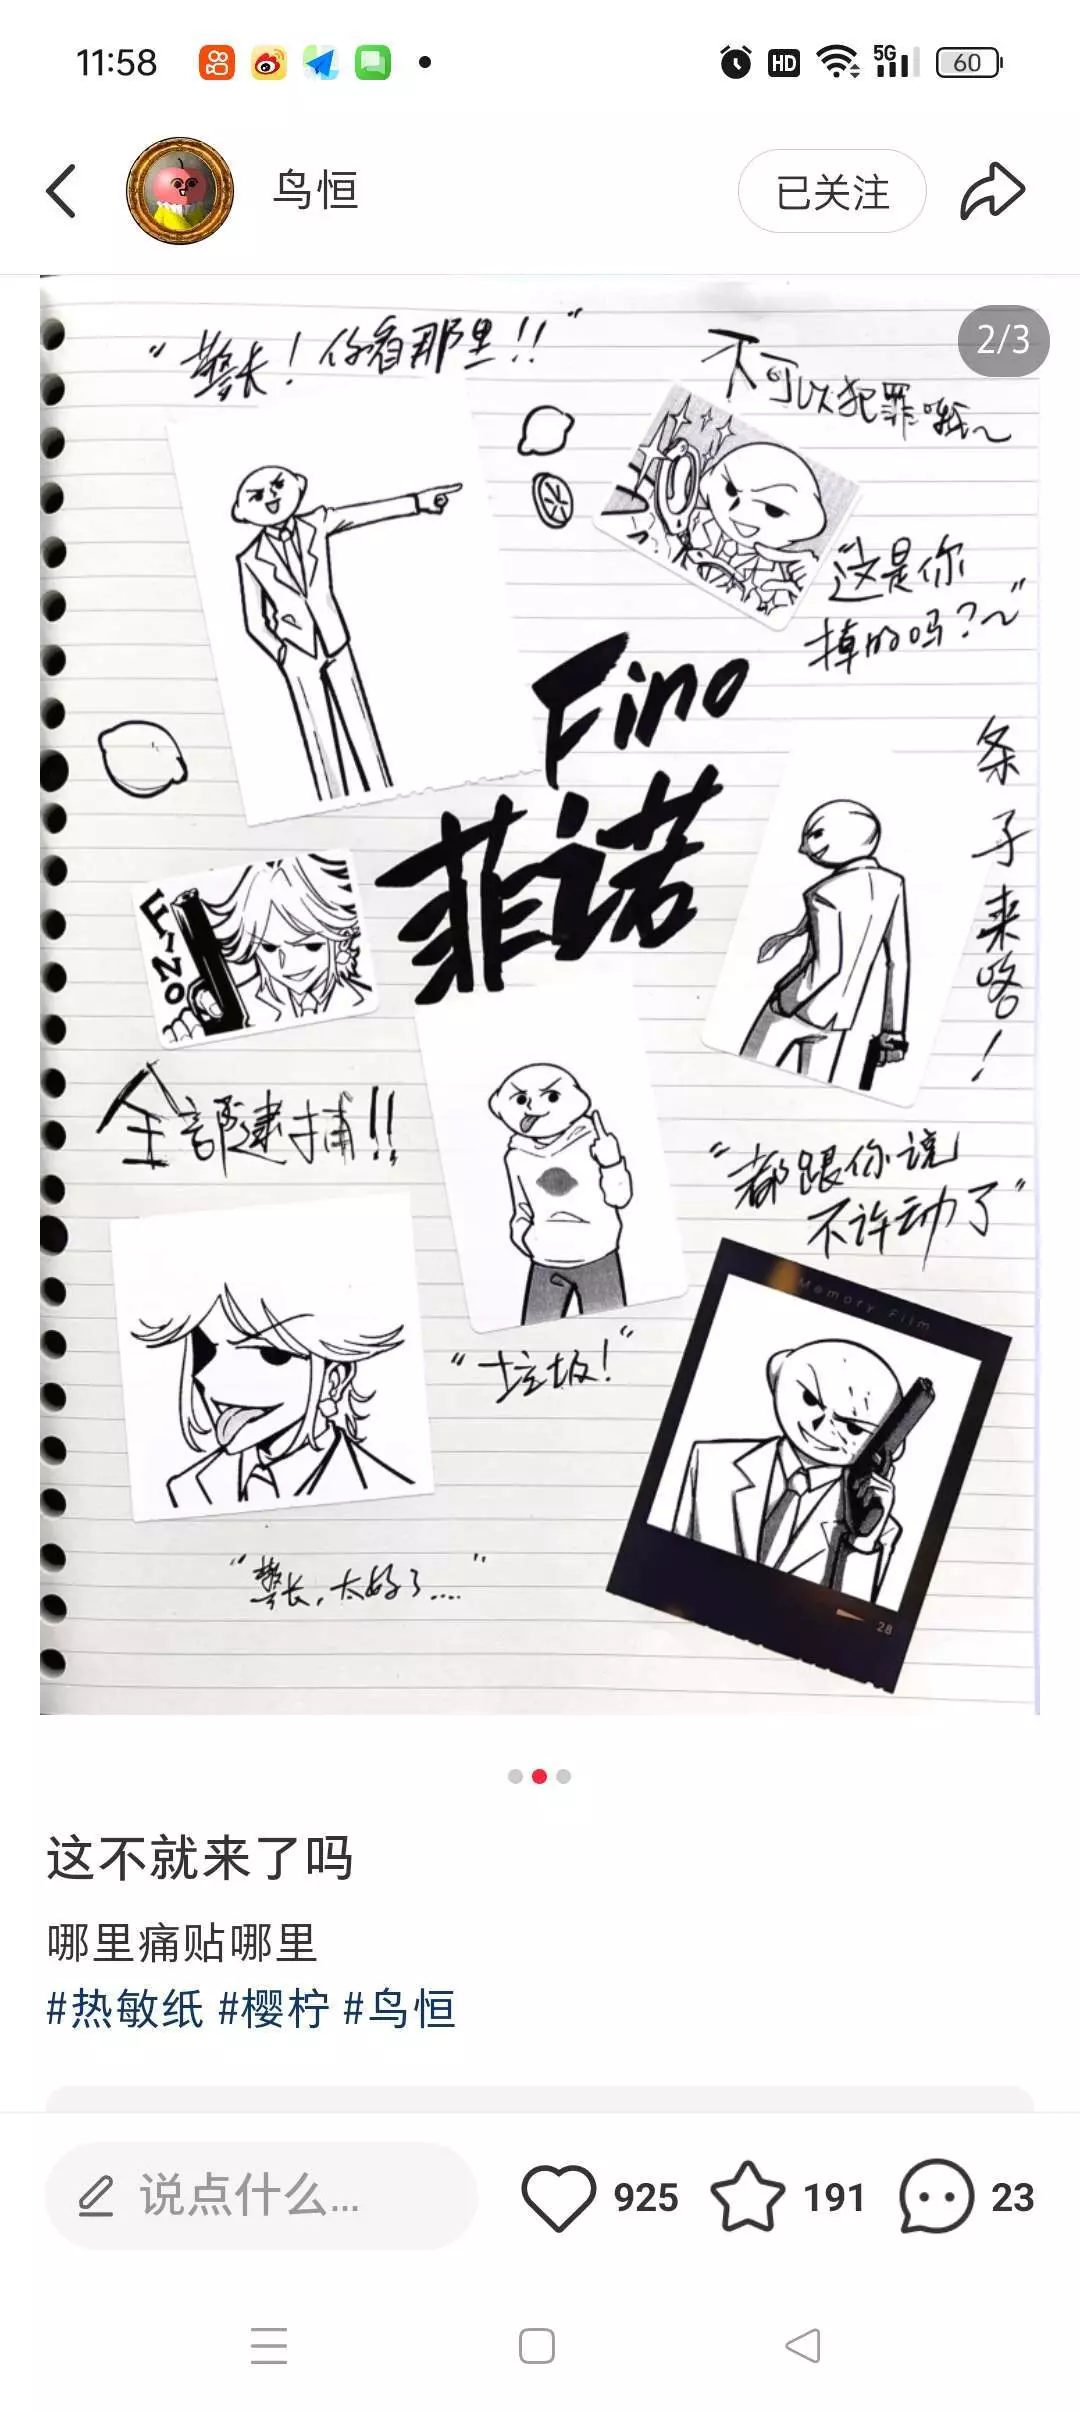 11:58
HD
5G
60
鸟恒
已关注
2/3
“警长！你看那里!!”
不可以犯罪哦～
“这是你
掉的吗？～”
Fino
菲诺
条子来咯！
FINO
全部逮捕!!
“都跟你说
不许动了”
Memory Film
“垃圾！”
28
“警长，太好了....”
这不就来了吗
哪里痛贴哪里
#热敏纸 #樱柠 #鸟恒
说点什么...
925
191
23